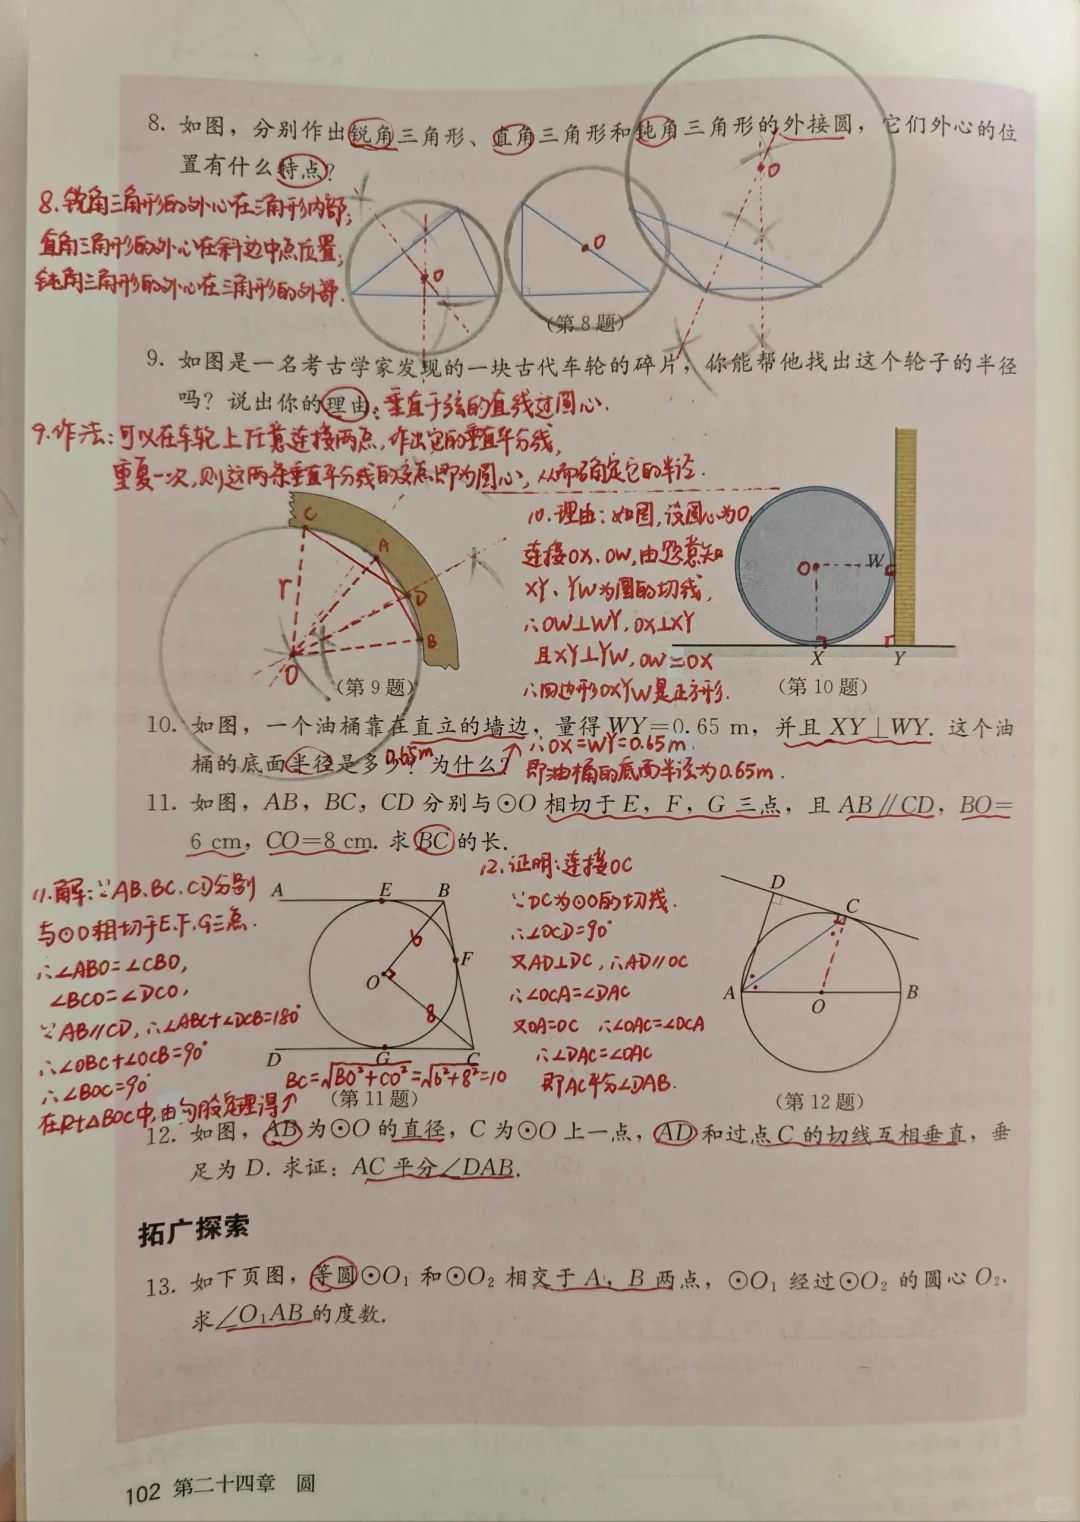 8. 如图，分别作出锐角三角形、直角三角形和钝角三角形的外接圆，它们外心的位
置有什么特点？
8.锐角三角形的外心在三角形内部；
直角三角形的外心在斜边中点位置；
钝角三角形的外心在三角形的外部.
O
O
O
(第8题)
9. 如图是一名考古学家发现的一块古代车轮的碎片，你能帮他找出这个轮子的半径
吗？说出你的理由：垂直于弦的直线过圆心.
9.作法：可以在车轮上任意连接两点，作出它的垂直平分线，
重复一次，则这两条垂直平分线的交点即为圆心，从而确定它的半径.
C
A
D
B
r
O
(第9题)
10.理由：如图，设圆心为O，
连接OX、OW，由题意知
XY、YW为圆的切线，
∴OW⊥WY，OX⊥XY
且XY⊥YW，OW=OX
∴四边形OXYW是正方形.
O
W
X
Y
(第10题)
10. 如图，一个油桶靠在直立的墙边，量得WY=0.65 m，并且XY⊥WY. 这个油
∴OX=WY=0.65m
桶的底面半径是多少？为什么？
0.65m
即油桶的底面半径为0.65m.
11. 如图，AB，BC，CD分别与⊙O相切于E，F，G三点，且AB∥CD，BO=
6 cm，CO=8 cm. 求BC的长.
11.解：∵AB、BC、CD分别
与⊙O相切于E、F、G三点.
∴∠ABO=∠CBO，
∠BCO=∠DCO，
∵AB∥CD，∴∠ABC+∠DCB=180°
∴∠OBC+∠OCB=90°
∴∠BOC=90°
在Rt△BOC中，由勾股定理得
BC=√BO²+CO²=√6²+8²=10
A
E
B
6
F
O
8
D
G
C
(第11题)
12.证明：连接OC
∵DC为⊙O的切线.
∴∠OCD=90°
又AD⊥DC，∴AD∥OC
∴∠OCA=∠DAC
又OA=OC ∴∠OAC=∠OCA
∴∠DAC=∠OAC
即AC平分∠DAB.
D
C
A
O
B
(第12题)
12. 如图，AB为⊙O的直径，C为⊙O上一点，AD和过点C的切线互相垂直，垂
足为D. 求证：AC平分∠DAB.
拓广探索
13. 如下页图，等圆⊙O₁和⊙O₂相交于A，B两点，⊙O₁经过⊙O₂的圆心O₂.
求∠O₁AB的度数.
102 第二十四章 圆